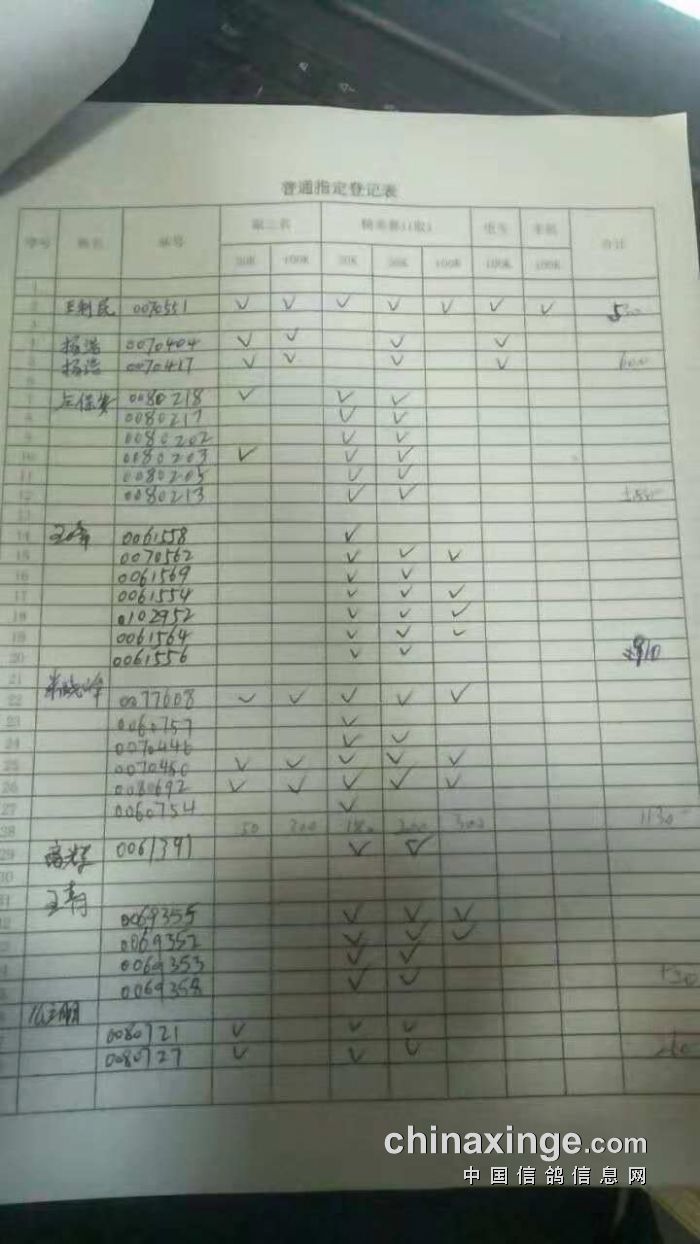 普通指定登记表
序号 姓名 环号 取三名 合计
50K 100K 30K 50K 100K 100K 100K
1
2 王利民 0070551 ✓ ✓ ✓ ✓ ✓ ✓ ✓
3
4 杨浩 0070404 ✓ ✓ ✓ ✓
5 杨浩 0070417 ✓ ✓ ✓ ✓ 600
6
7 左保安 0080218 ✓ ✓ ✓
8 0080217 ✓ ✓
9 0080202 ✓ ✓
10 0080203 ✓ ✓ ✓
11 0080205 ✓ ✓
12 0080213 ✓ ✓
13
14 王峰 0061558 ✓
15 0070562 ✓ ✓ ✓
16 0061569 ✓ ✓
17 0061554 ✓ ✓ ✓
18 0102952 ✓ ✓ ✓
19 0061564 ✓ ✓ ✓
20 0061556 ✓ ✓
21
22 0077608 ✓ ✓ ✓ ✓ ✓
23 0060757 ✓
24 0070446 ✓ ✓
25 0070450 ✓ ✓ ✓ ✓ ✓
26 0080692 ✓ ✓ ✓ ✓ ✓
27 0060754 ✓ 1130
28 50 200 180 200 300
29 0061391 ✓ ✓
30
31 王青
32 0069355 ✓ ✓ ✓
0069352 ✓ ✓ ✓
0069353 ✓ ✓
0069358 ✓ ✓
0080721 ✓ ✓ ✓
0080727 ✓ ✓ ✓
chinaxinge.com
中国信鸽信息网